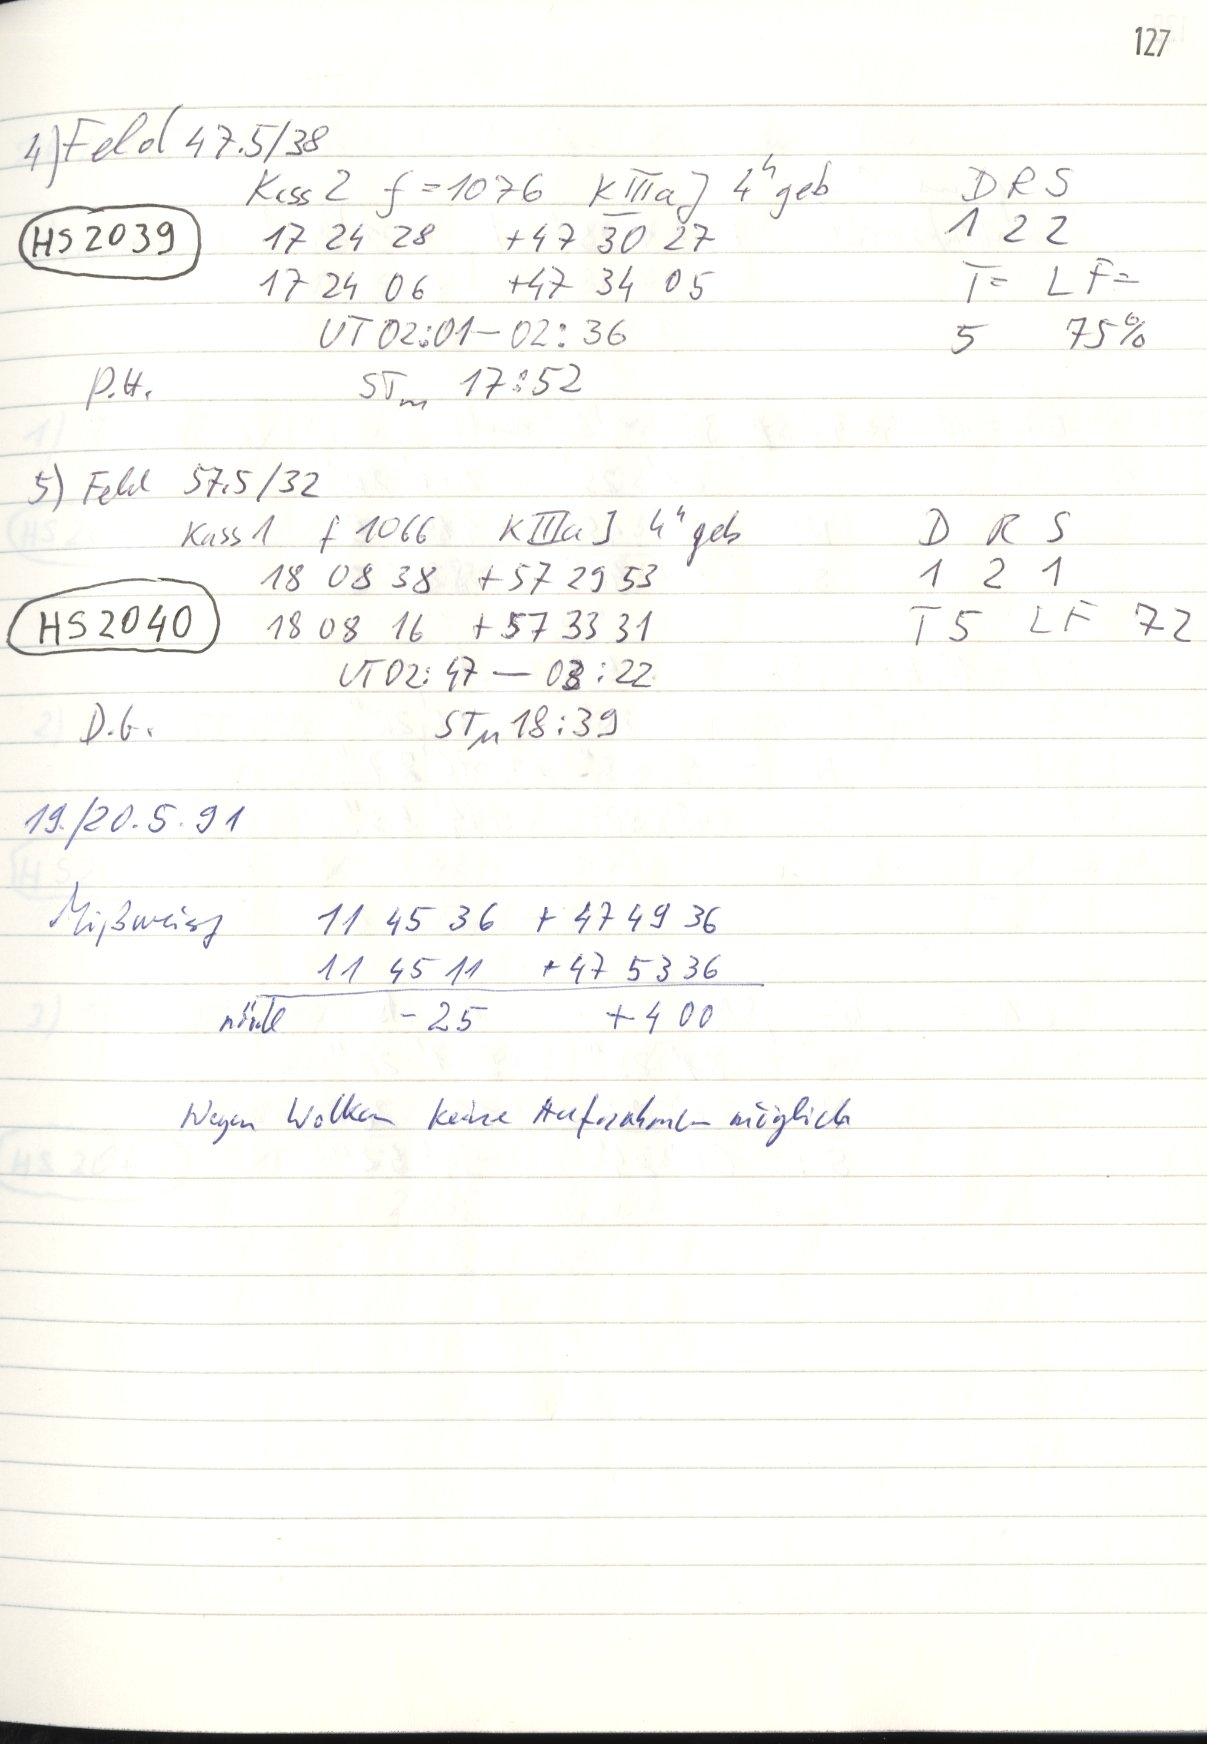 127
4) Feld 47.5/38
Kass 2 f = 1076 K III a J 4ʰ geb D R S
HS 2039 17 24 28 +47 30 27 1 2 2
17 24 06 +47 34 05 T= LF=
UT 02:01 – 02:36 5 75%
P.H. STm 17:52
5) Feld 57.5/32
Kass 1 f 1066 K III a J 4ʰ geb D R S
18 08 38 +57 29 53 1 2 1
HS 2040 18 08 16 +57 33 31 T 5 LF 72
UT 02:47 — 03:22
D.G. STm 18:39
19./20.5.91
Mißweisg 11 45 36 + 47 49 36
11 45 11 +47 53 36
nördl -25 +4 00
Wegen Wolken keine Aufnahmen möglich